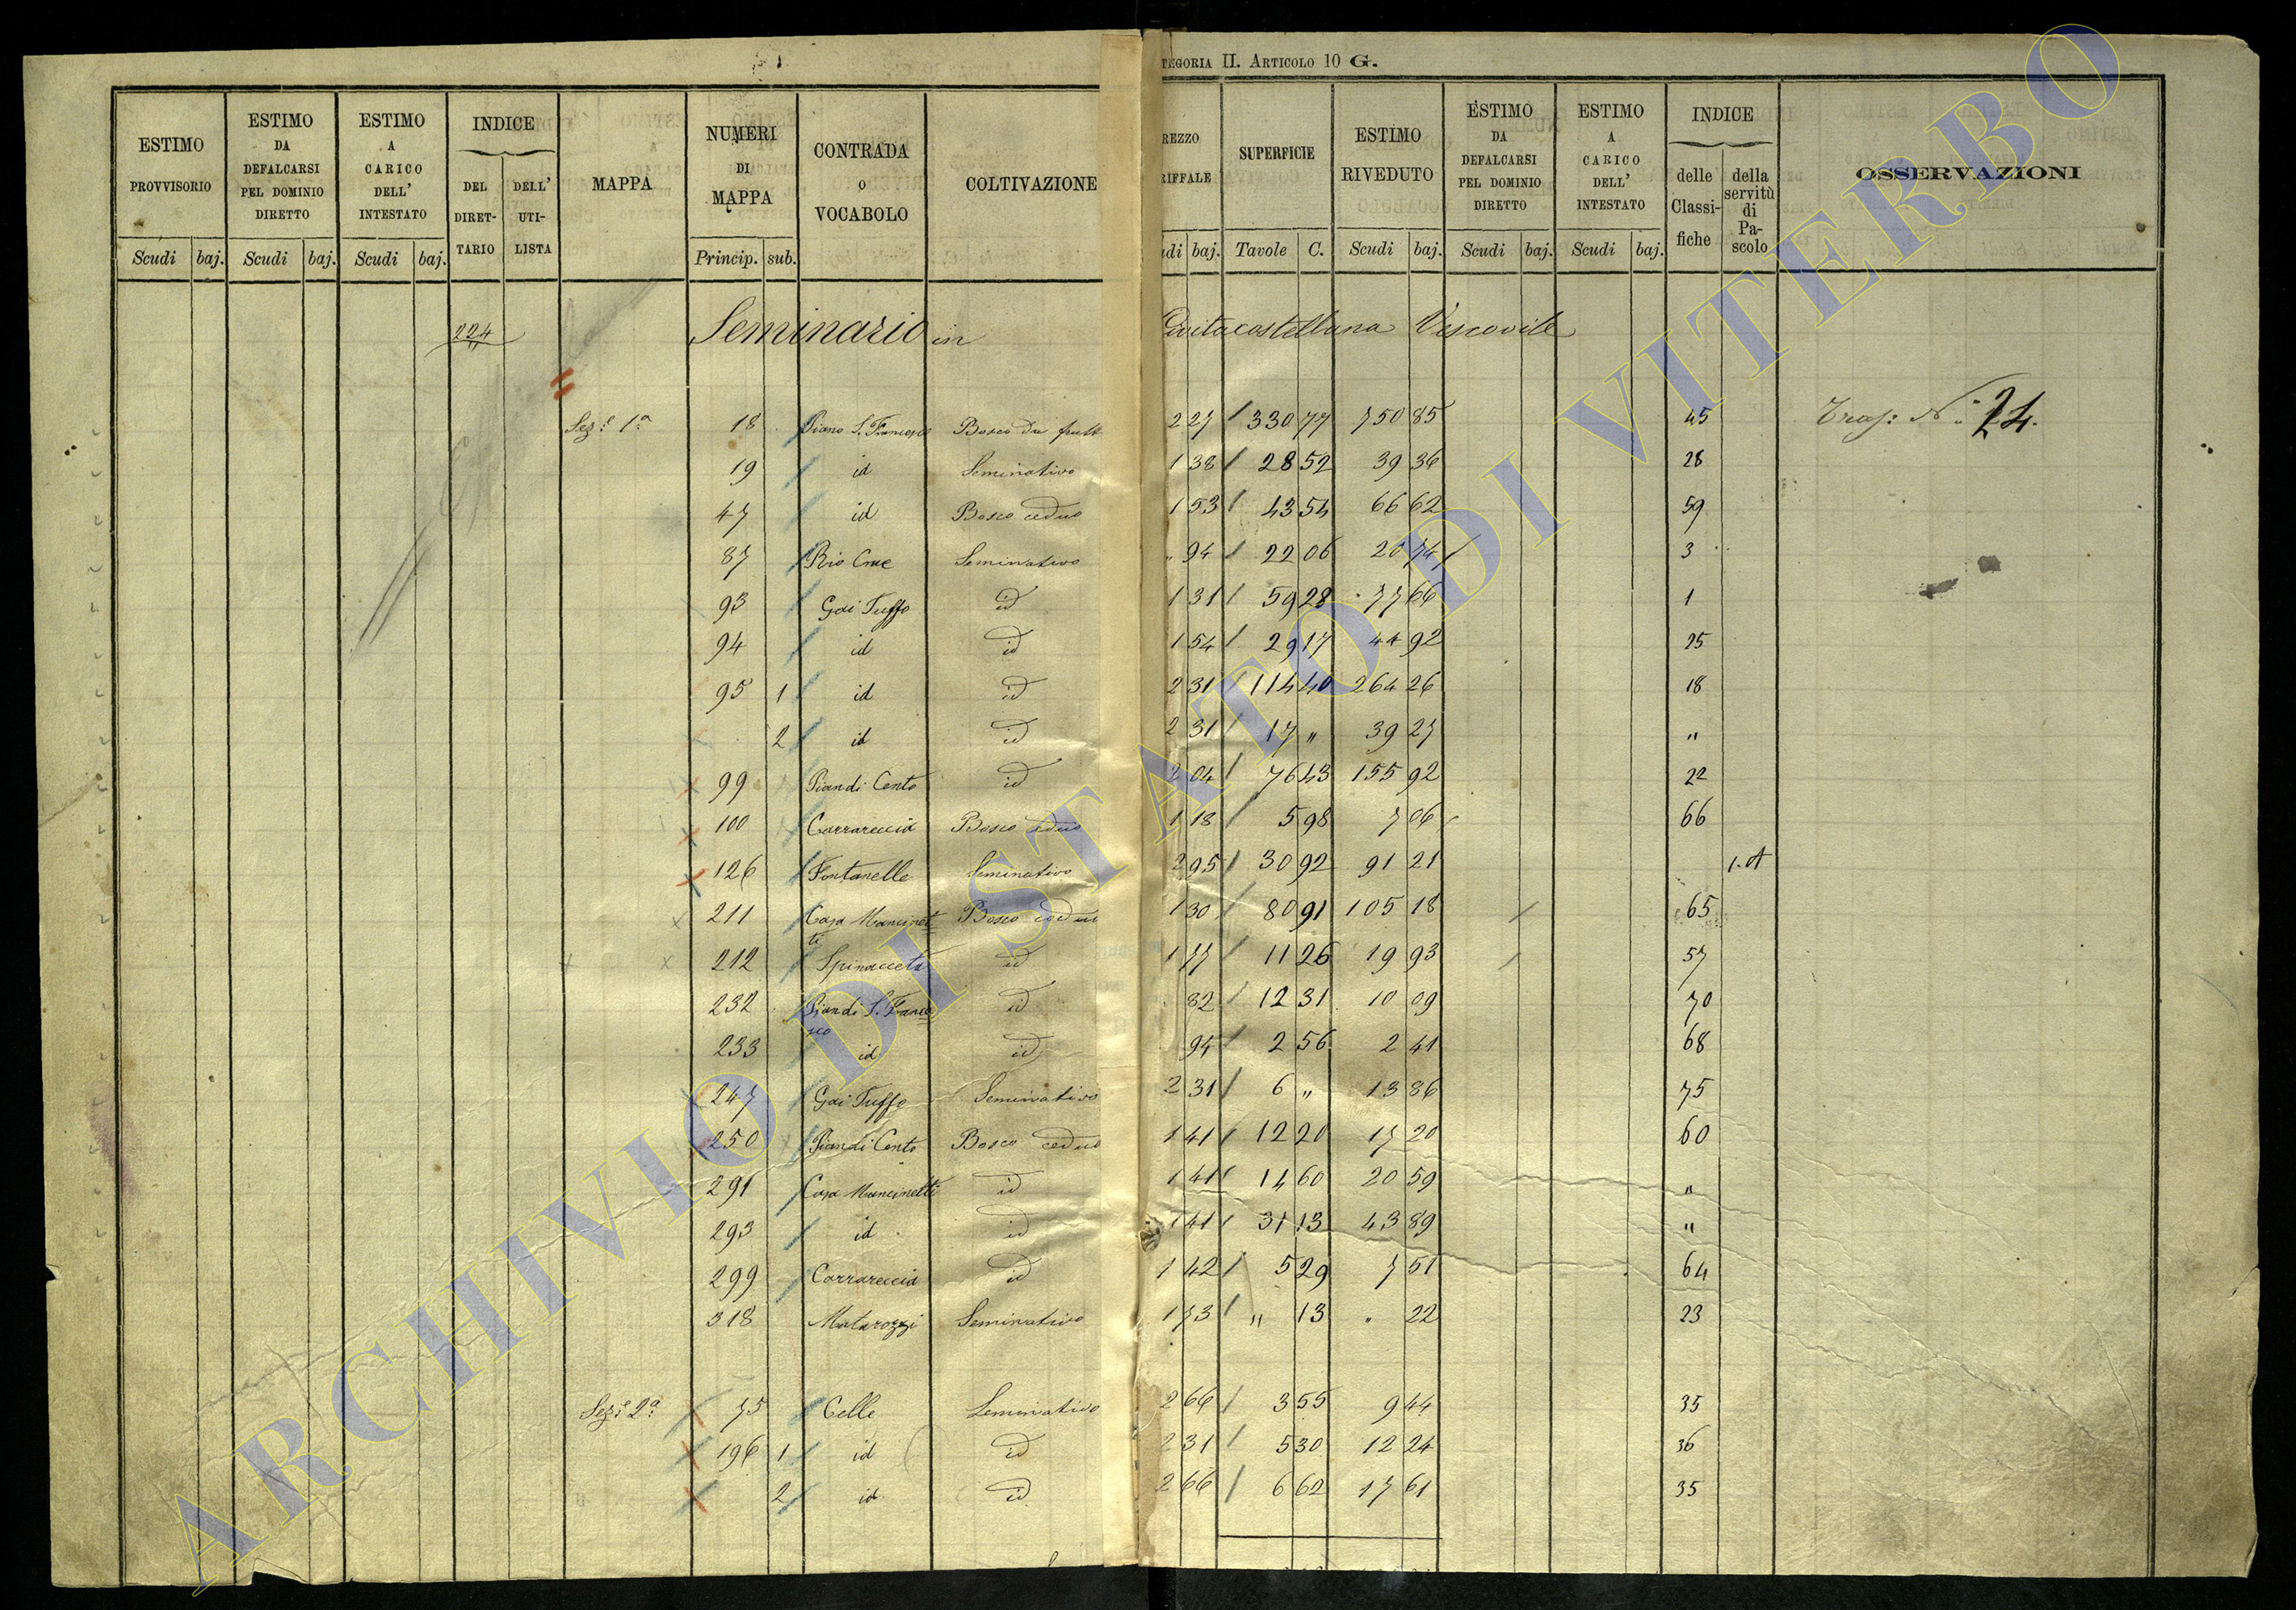 TEGORIA II. ARTICOLO 10 G.
ESTIMO PROVVISORIO Scudi baj.
ESTIMO DA DEFALCARSI PEL DOMINIO DIRETTO Scudi baj.
ESTIMO A CARICO DELL' INTESTATO Scudi baj.
INDICE DEL DIRET-TARIO DELL' UTI-LISTA
MAPPA
NUMERI DI MAPPA Princip. sub.
CONTRADA o VOCABOLO
COLTIVAZIONE
REZZO RIFFALE udi baj.
SUPERFICIE Tavole C.
ESTIMO RIVEDUTO Scudi baj.
ESTIMO DA DEFALCARSI PEL DOMINIO DIRETTO Scudi baj.
ESTIMO A CARICO DELL' INTESTATO Scudi baj.
INDICE delle Classi-fiche della servitù di Pa-scolo
OSSERVAZIONI
224 Seminario in Civitacastellana Vescovile
Sez: 1a 18 Piano S. Francesco Bosco da frutt 2 27 330 77 750 85 45 Tras: N: 24.
19 id Seminativo 1 38 28 52 39 36 28
47 id Bosco ceduo 1 53 43 54 66 62 59
87 Rio Cruc Seminativo " 94 22 06 20 74 3
93 Goi Tuffo id 1 31 59 28 77 66 1
94 id id 1 54 29 17 44 92 25
95 1 id id 2 31 114 40 264 26 18
2 id id 2 31 17 " 39 27 "
99 Pian di Cento id 2 04 76 43 155 92 22
100 Carrareccia Bosco ceduo 1 18 5 98 7 06 66
126 Fontanelle Seminativo 2 95 30 92 91 21 1. A
211 Casa Mancinet-ti Bosco ceduo 1 30 80 91 105 18 65
212 Spinacceta id 1 77 11 26 19 93 57
232 Pian di S. France-sco id 82 12 31 10 09 70
233 id id 94 2 56 2 41 68
247 Goi Tuffo Seminativo 2 31 6 " 13 86 75
250 Pian di Cento Bosco ceduo 1 41 12 20 17 20 60
291 Casa Mancinetti id 1 41 14 60 20 59 "
293 id id 1 41 31 13 43 89 "
299 Carrareccia id 1 42 5 29 7 51 64
318 Matarozzi Seminativo 1 73 " 13 " 22 23
Sez: 2a 75 Celle Seminativo 2 66 3 55 9 44 35
196 1 id id 2 31 5 30 12 24 36
2 id id 2 66 6 62 17 61 35
ARCHIVIO DI STATO DI VITERBO